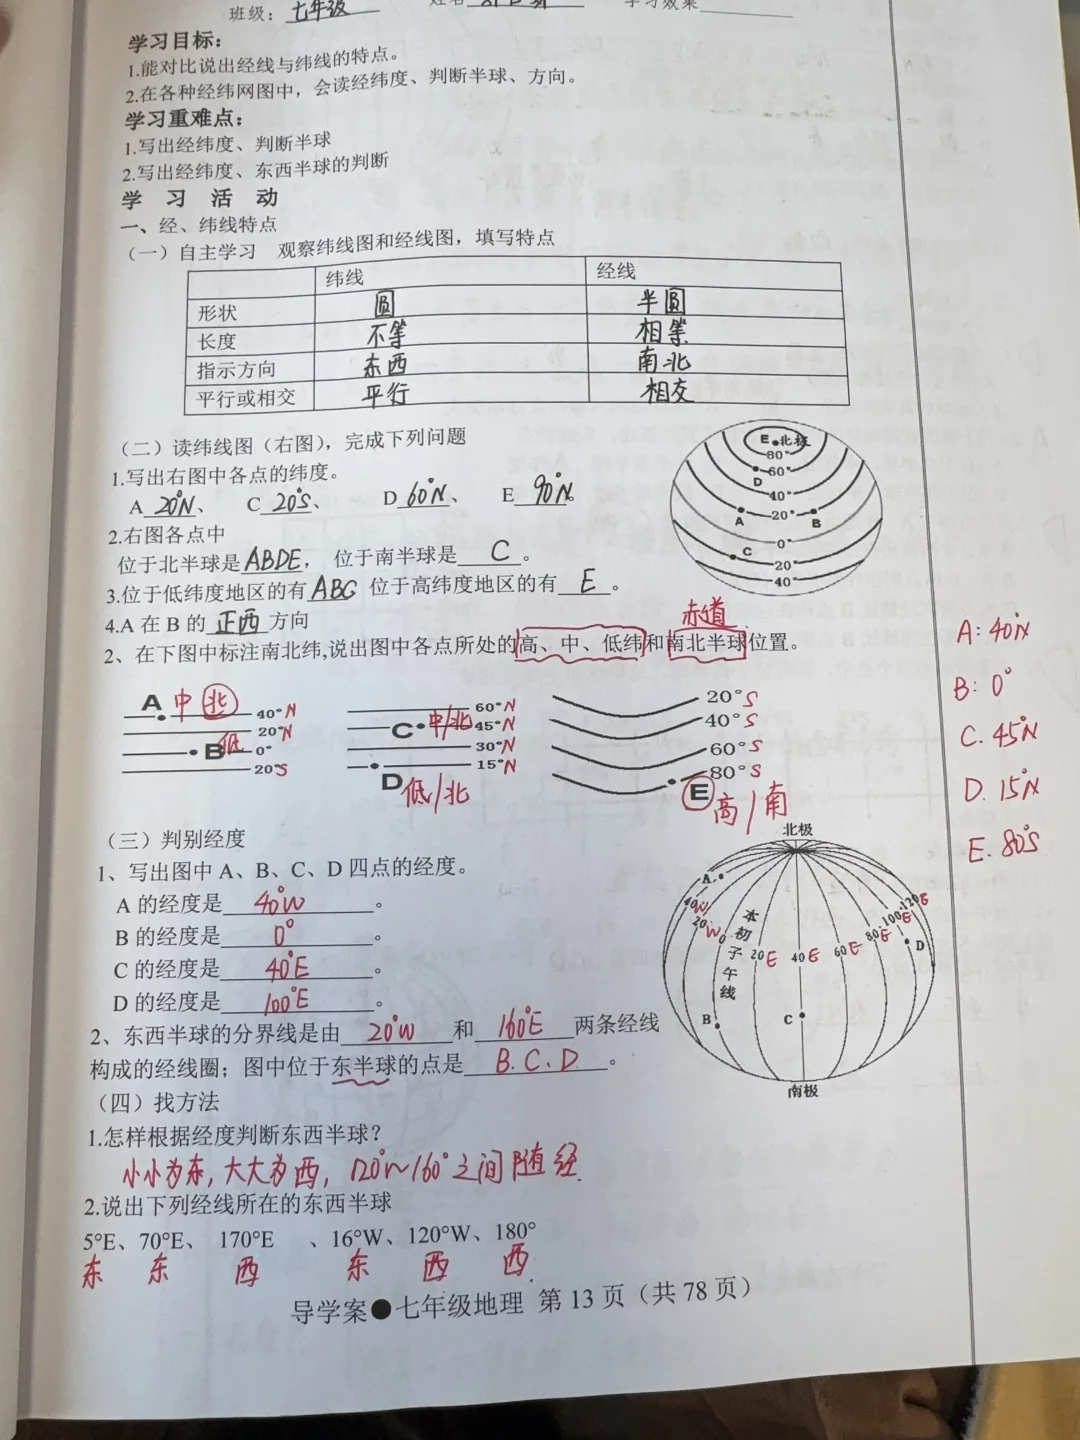 班级：七年级 学习效果
学习目标：
1.能对比说出经线与纬线的特点。
2.在各种经纬网图中，会读经纬度、判断半球、方向。
学习重难点：
1.写出经纬度、判断半球
2.写出经纬度、东西半球的判断
学 习 活 动
一、经、纬线特点
（一）自主学习 观察纬线图和经线图，填写特点
纬线 经线
形状 圆 半圆
长度 不等 相等
指示方向 东西 南北
平行或相交 平行 相交
（二）读纬线图（右图），完成下列问题
1.写出右图中各点的纬度。
A 20°N、 C 20°S、 D 60°N、 E 90°N
2.右图各点中
位于北半球是 ABDE， 位于南半球是 C 。
3.位于低纬度地区的有 ABC 位于高纬度地区的有 E 。
4.A 在 B 的 正西 方向
E 北极
80°
60°
D
40°
20°
A B
0°
C
20°
40°
赤道
2、在下图中标注南北纬,说出图中各点所处的高、中、低纬和南北半球位置。
A 中 北 40°N
20°N
B 低 0°
20°S
60°N
C 中/北 45°N
30°N
15°N
D 低/北
20°S
40°S
60°S
80°S
E 高/南
A: 40N
B: 0°
C. 45°N
D. 15°N
E. 80°S
（三）判别经度
1、写出图中 A、B、C、D 四点的经度。
A 的经度是 40°W 。
B 的经度是 0° 。
C 的经度是 40°E 。
D 的经度是 100°E 。
2、东西半球的分界线是由 20°W 和 160°E 两条经线
构成的经线圈；图中位于东半球的点是 B.C.D 。
北极
A
40W 20W 0 20E 40E 60E 80E 100E 120E
本初子午线
D
B C
南极
（四）找方法
1.怎样根据经度判断东西半球？
小小为东,大大为西, 120°~160°之间随经
2.说出下列经线所在的东西半球
5°E、70°E、 170°E 、16°W、120°W、180°
东 东 西 东 西 西.
导学案●七年级地理 第 13 页（共 78 页）